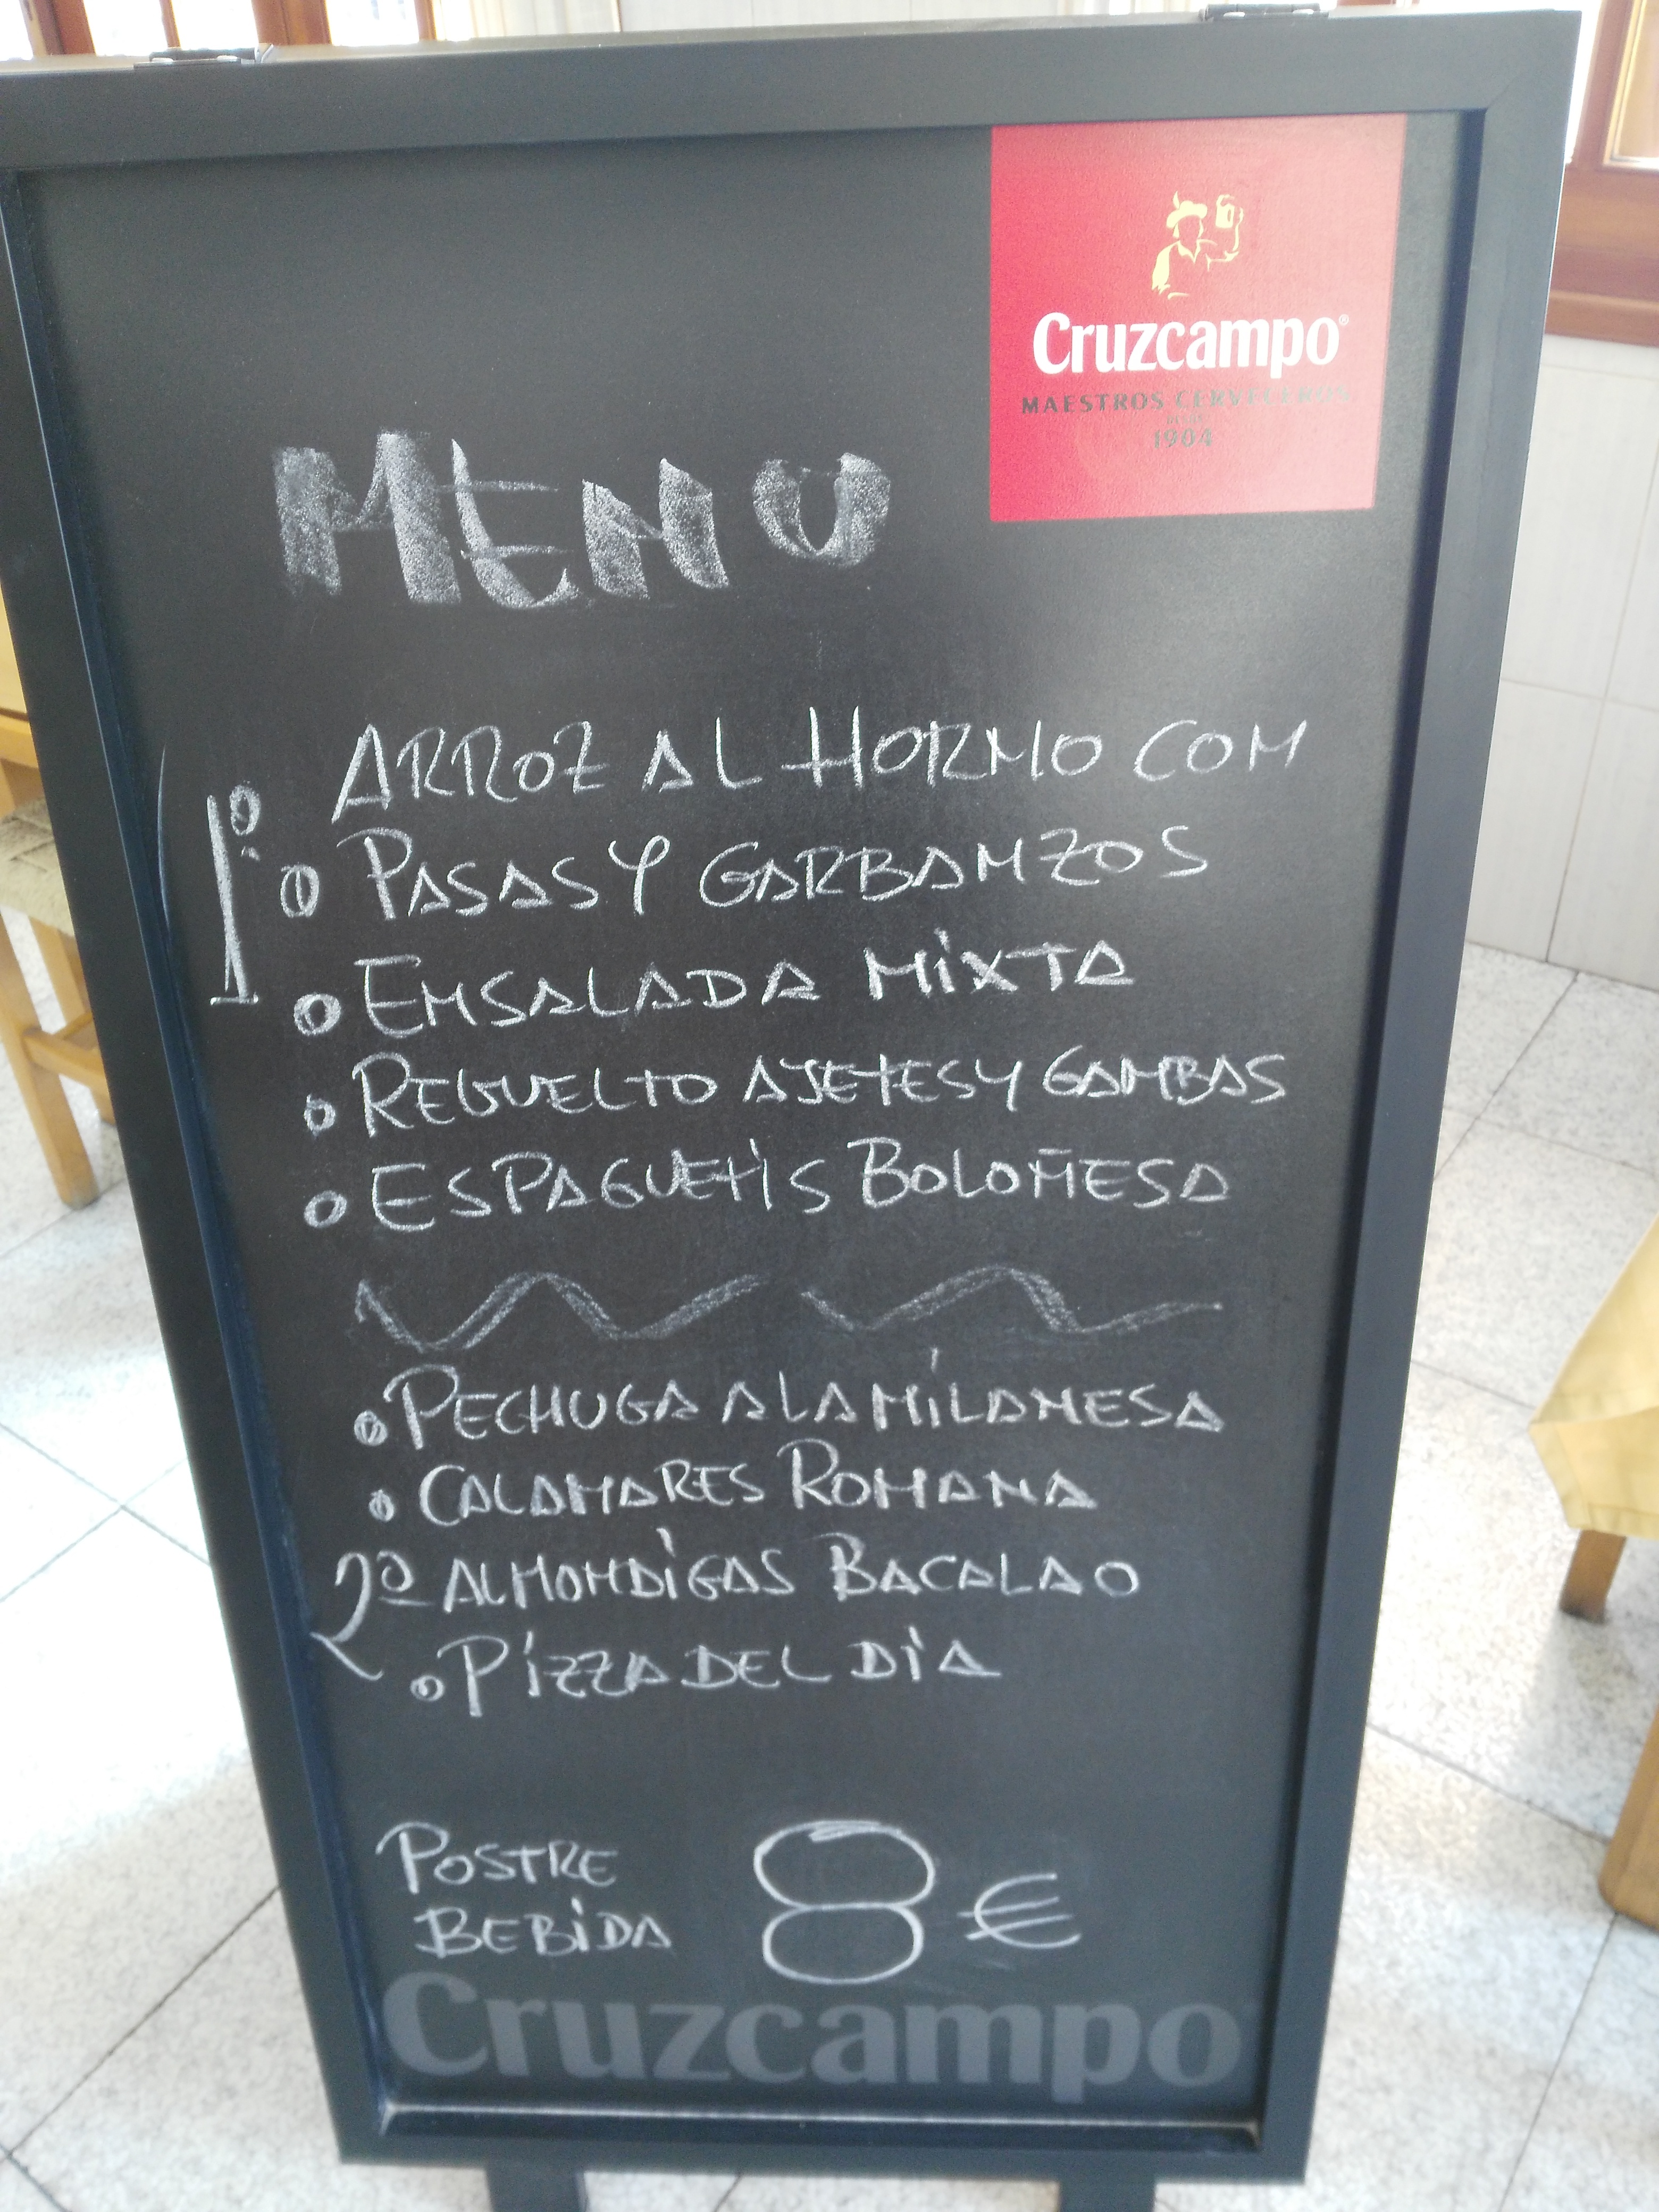 Cruzcampo®
MAESTROS CERVECEROS
DESDE
1904
MENU
1º
ARROZ AL HORNO CON
PASAS Y GARBANZOS
ENSALADA MIXTA
REBUELTO AJETES Y GAMBAS
ESPAGUETIS BOLOÑESA
PECHUGA A LA MILANESA
CALAMARES ROMANA
2º ALMONDIGAS BACALAO
PIZZA DEL DIA
POSTRE
BEBIDA 8 €
Cruzcampo